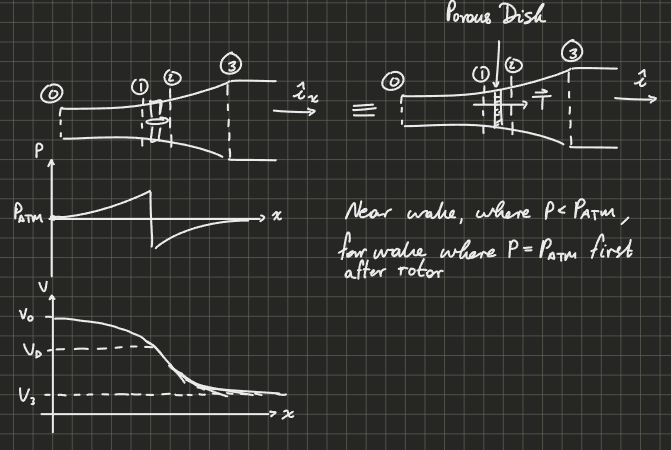 Porous Disk
⓪ ① ② ③ î_x
≡
⓪ ① ② ③ T î
P
P_ATM x
Near wake, where P < P_ATM,
far wake where P = P_ATM first
after rotor
V
V_0
V_D
V_3 x